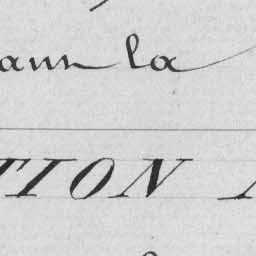 dans la
TION